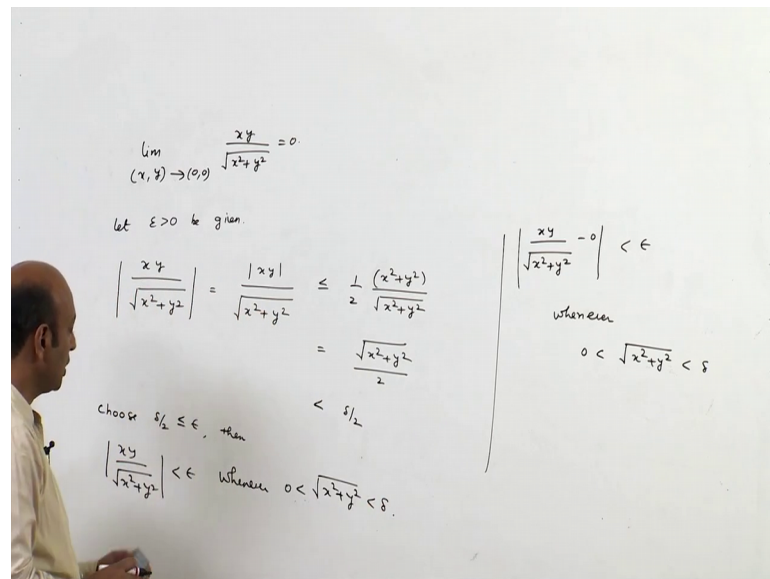 lim (x, y) → (0,0) xy / √(x² + y²) = 0.
let ε > 0 be given.
| xy / √(x² + y²) | = |xy| / √(x² + y²) ≤ 1/2 (x² + y²) / √(x² + y²)
= √(x² + y²) / 2
< δ/2
choose δ/2 ≤ ε, then
| xy / √(x² + y²) | < ε whenever 0 < √(x² + y²) < δ.
| xy / √(x² + y²) − 0 | < ε
whenever
0 < √(x² + y²) < δ